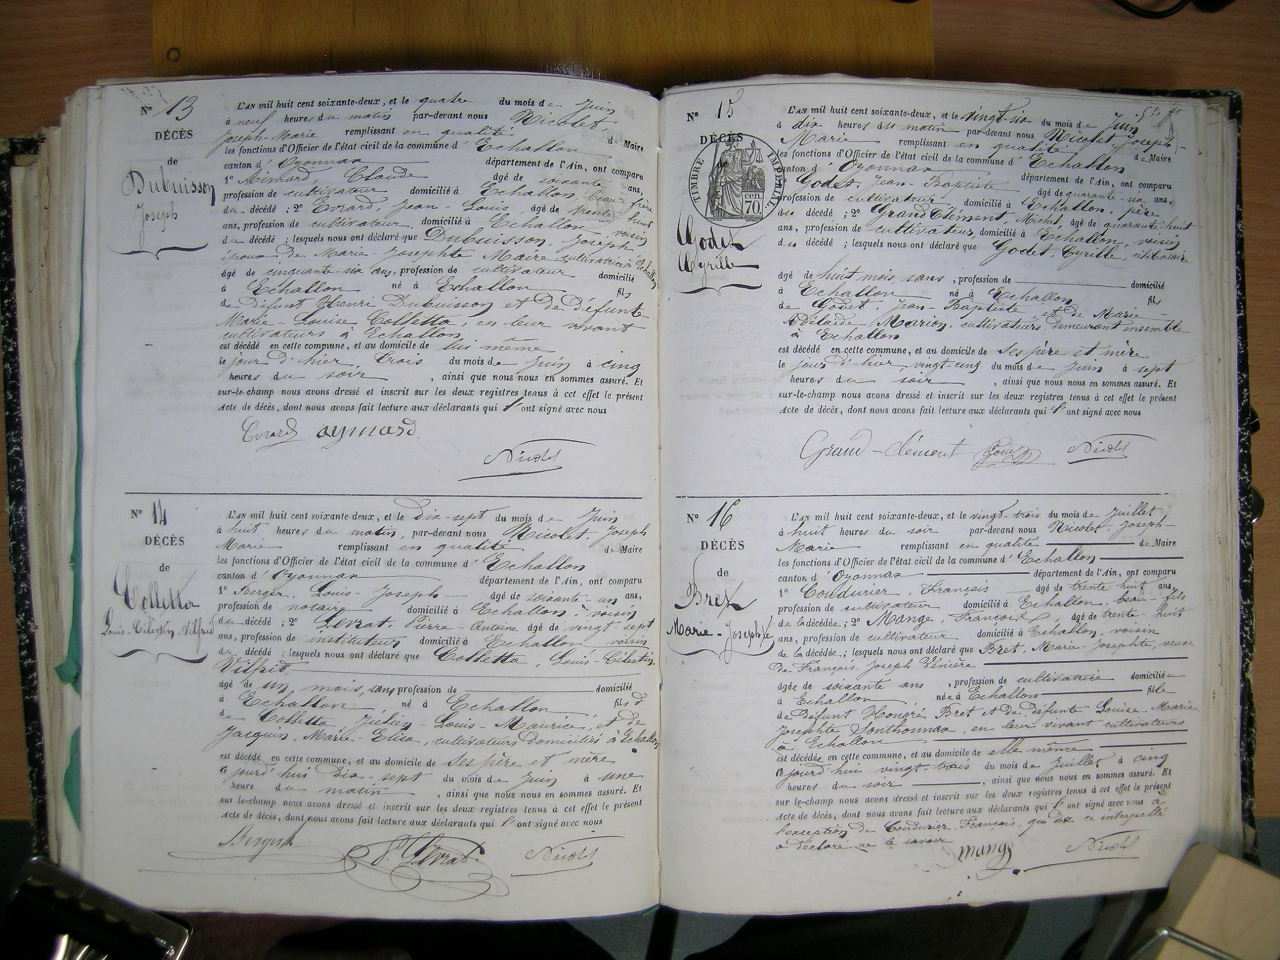 N° 13
DÉCÈS
de
Dubuisson
Joseph
L'AN mil huit cent soixante-deux, et le quatre du mois de Juin
à neuf heures du matin par-devant nous Nicolet
Joseph-Marie remplissant en qualité de Maire
les fonctions d'Officier de l'état civil de la commune d'Echallon
canton d'Oyonnax département de l'Ain, ont comparu
1° Claude âgé de soixante ans,
profession de cultivateur domicilié à Echallon, beau-frère
du décédé; 2° Evrard, Jean-Louis, âgé de trente huit
ans, profession de cultivateur, domicilié à Echallon, voisin
du décédé; lesquels nous ont déclaré que Dubuisson, Joseph
époux de Marie Josephte Maire cultivatrice à Echallon
âgé de cinquante six ans, profession de cultivateur domicilié
à Echallon né à Echallon fils
de défunt Henri Dubuisson et de défunte
Marie-Louise Colletta, en leur vivant
cultivateurs à Echallon
est décédé en cette commune, et au domicile de lui même
le jour d'hier trois du mois de Juin à cinq
heures du soir, ainsi que nous nous en sommes assuré. Et
sur-le-champ nous avons dressé et inscrit sur les deux registres tenus à cet effet le présent
Acte de décès, dont nous avons fait lecture aux déclarants qui l'ont signé avec nous
Evrard aymard
Nicolet
N° 14
DÉCÈS
de
Colletta
Louis-Célestin-Vilfrid
L'AN mil huit cent soixante-deux, et le dix-sept du mois de Juin
à huit heures du matin, par-devant nous Nicolet-Joseph
Marie remplissant en qualité de Maire
les fonctions d'Officier de l'état civil de la commune d'Echallon
canton d'Oyonnax département de l'Ain, ont comparu
1° Louis-Joseph âgé de soixante-un ans,
profession de notaire domicilié à Echallon, voisin
du décédé; 2° Levrat, Pierre-Antoine âgé de vingt sept
ans, profession de instituteur domicilié à Echallon, voisin
du décédé; lesquels nous ont déclaré que Colletta, Louis-Célestin
âgé de un mois, sans profession de domicilié
à Echallon né à Echallon fils d
de Colletta Louis-Maurice et de
Jacquin, Marie-Eliza, cultivateurs domiciliés à Echallon
est décédé en cette commune, et au domicile de ses père et mère
aujourd'hui dix-sept du mois de Juin à une
heure du matin, ainsi que nous nous en sommes assuré. Et
sur-le-champ nous avons dressé et inscrit sur les deux registres tenus à cet effet le présent
Acte de décès, dont nous avons fait lecture aux déclarants qui l'ont signé avec nous
Levrat Nicolet
N° 15
DÉCÈS
TIMBRE IMPÉRIAL
70 cen.
Godet
Cyrille
L'AN mil huit cent soixante-deux, et le vingt-six du mois de Juin
à dix heures du matin par-devant nous Nicolet Joseph-
Marie remplissant en qualité de Maire
les fonctions d'Officier de l'état civil de la commune d'Echallon
canton d'Oyonnax département de l'Ain, ont comparu
1° Godet, Jean-Baptiste âgé de quarante-six ans,
profession de cultivateur domicilié à Echallon, père
du décédé; 2° Grand Clément, Michel, âgé de quarante huit
ans, profession de cultivateur, domicilié à Echallon, voisin
du décédé; lesquels nous ont déclaré que Godet, Cyrille, célibataire
âgé de huit mois sans, profession de domicilié
à Echallon né à Echallon fils
de Godet, Jean-Baptiste et de Marie
Adélaïde Marion, cultivateurs demeurant ensemble
à Echallon
est décédé en cette commune, et au domicile de ses père et mère
le jour d'hier, vingt-cinq du mois de Juin à sept
heures du soir, ainsi que nous nous en sommes assuré. Et
sur-le-champ nous avons dressé et inscrit sur les deux registres tenus à cet effet le présent
Acte de décès, dont nous avons fait lecture aux déclarants qui l'ont signé avec nous
Grand-clément Nicolet
N° 16
DÉCÈS
de
Bret
Marie-Josephte
L'AN mil huit cent soixante-deux, et le vingt-trois du mois de Juillet
à huit heures du soir par-devant nous Nicolet-Joseph-
Marie remplissant en qualité de Maire
les fonctions d'Officier de l'état civil de la commune d'Echallon
canton d'Oyonnax département de l'Ain, ont comparu
1° Coudurier, François âgé de trente huit ans,
profession de cultivateur domicilié à Echallon, beau-fils
de la décédée; 2° Mange, François, âgé de trente huit
ans, profession de cultivateur domicilié à Echallon, voisin
de la décédée; lesquels nous ont déclaré que Bret, Marie-Josephte, veuve
de François Joseph
âgée de soixante ans, profession de cultivatrice domiciliée
à Echallon, née à Echallon fille
de défunt Honoré Bret et de défunte Louise-Marie
Josephte Sonthonnax, en leur vivant cultivateurs
à Echallon
est décédée en cette commune, et au domicile de elle même
aujourd'hui vingt-trois du mois de Juillet à cinq
heures du soir, ainsi que nous nous en sommes assuré. Et
sur-le-champ nous avons dressé et inscrit sur les deux registres tenus à cet effet le présent
Acte de décès, dont nous avons fait lecture aux déclarants qui l'ont signé avec nous à
l'exception de Coudurier, François, qui de ce interpellé
a déclaré ne le savoir
mange Nicolet